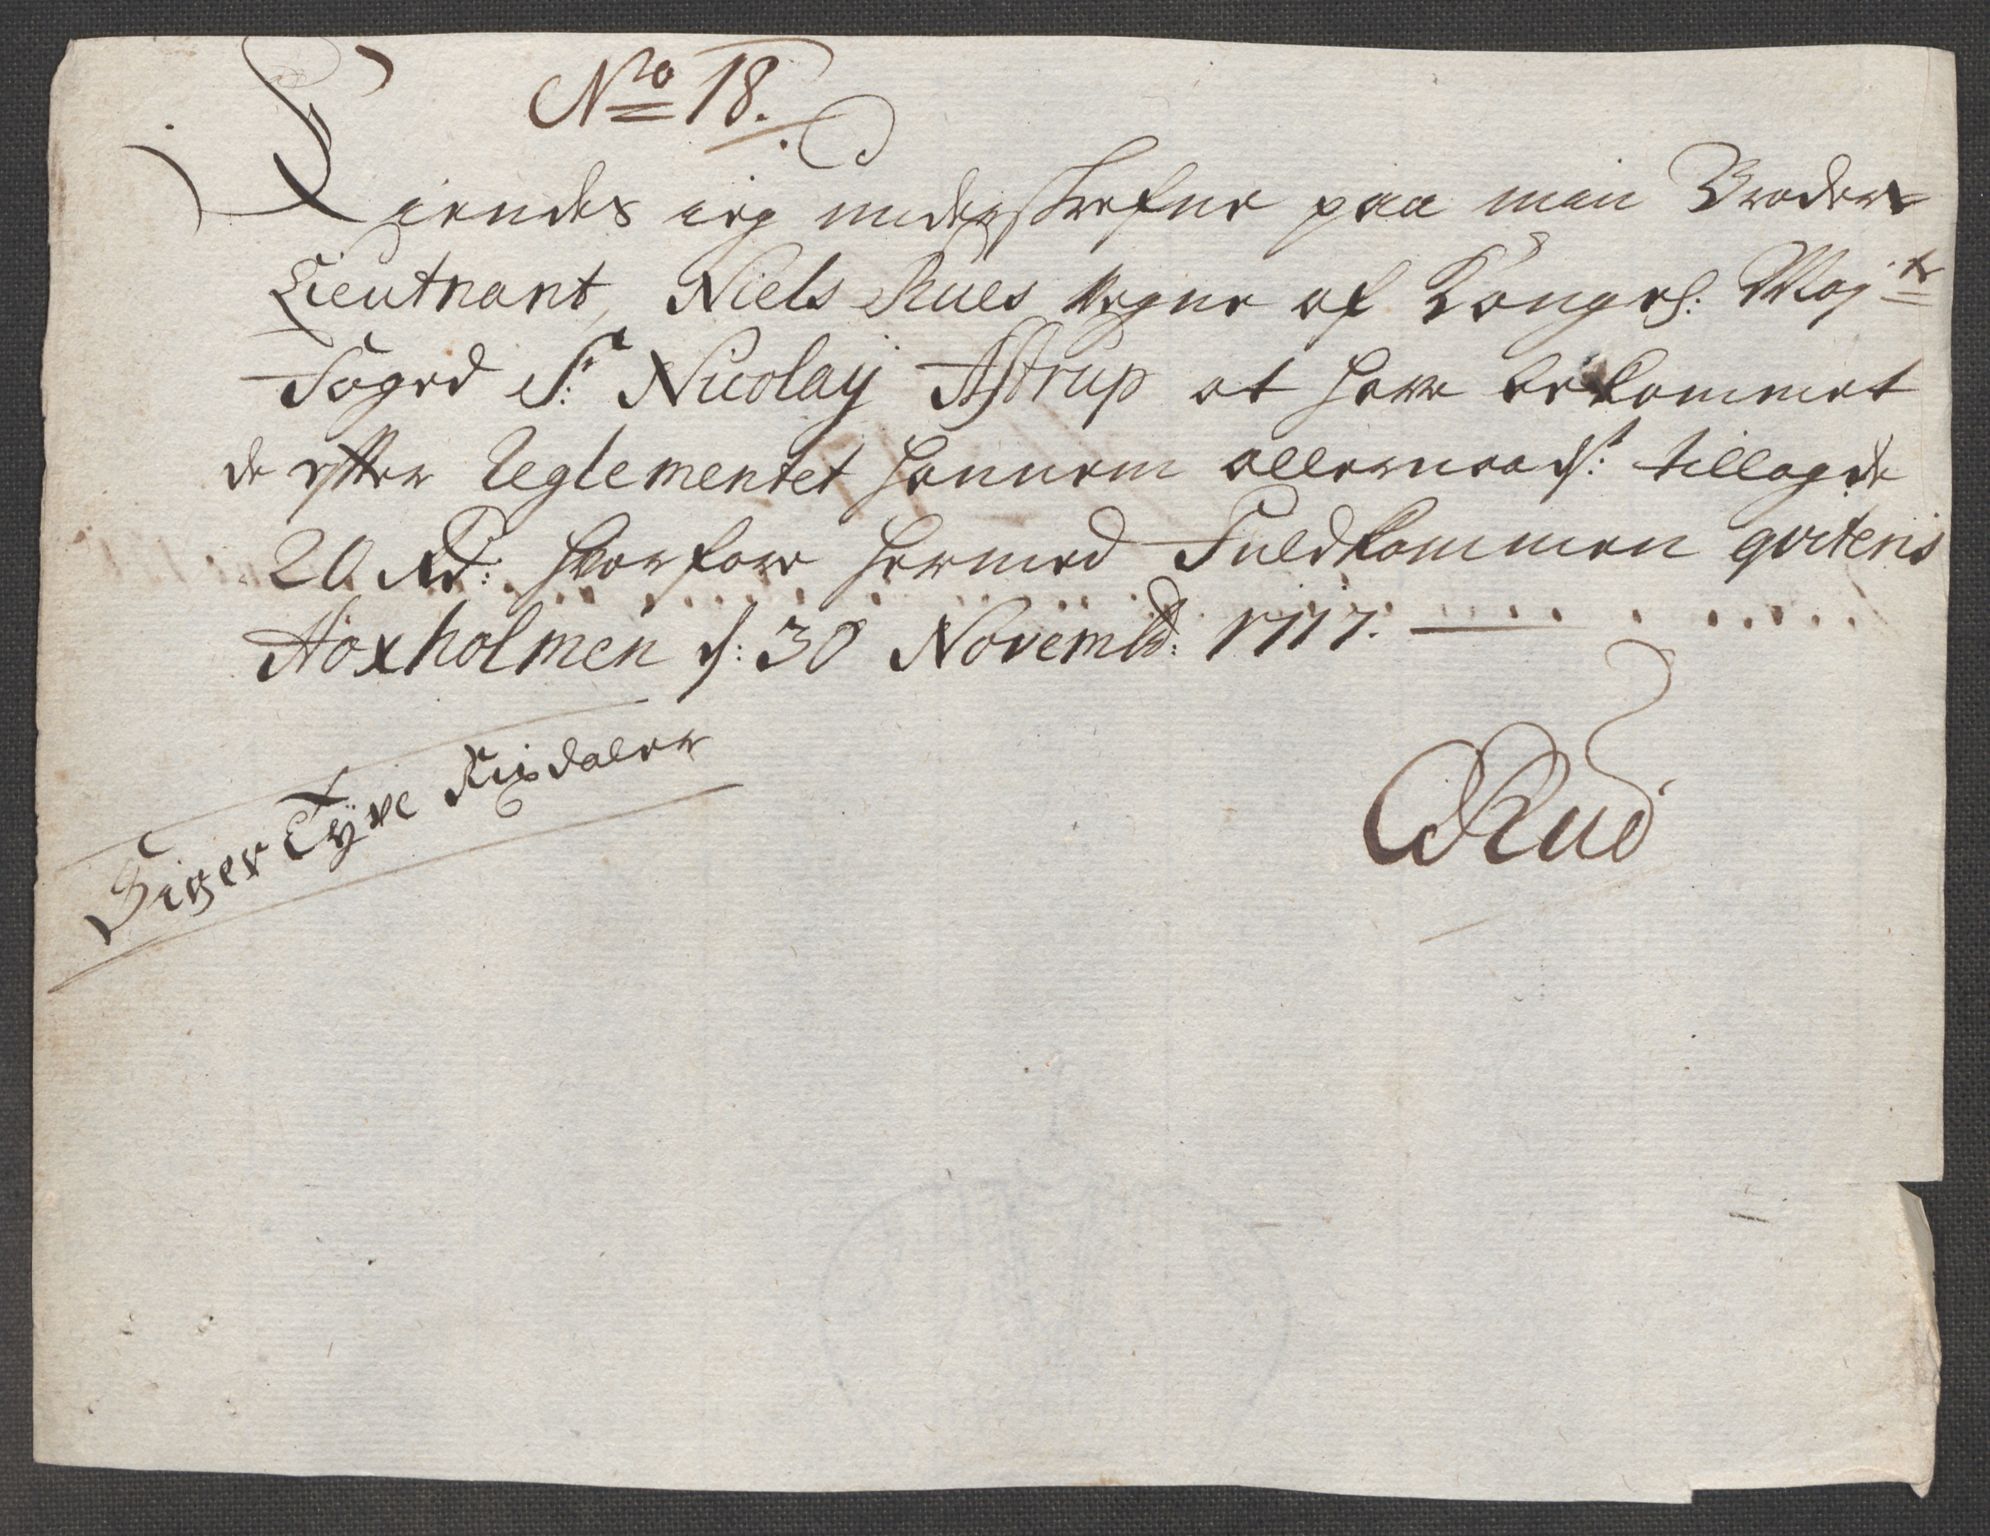 No 18.
Kiendes ieg underskrefne paa min Broders
Lieutnant, Niels Rues vegne af Kongel: Maj:ts
Foged Sr: Nicolay Astrup at have bekommet
de efter Reglementet hannem allernaadst: tillagde
20 Rd: hvorfore hermed Fuldkommen qvitteris
Hoxholmen d: 30 Novembr: 1717.
Siger Tÿve Rixdaler
Rued